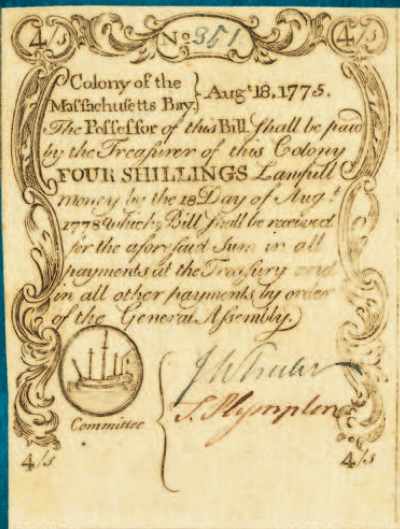 4/s No 351 4/s
Colony of the
Massachusetts Bay, } Augt 18. 1775.
The Possessor of this Bill shall be paid
by the Treasurer of this Colony
FOUR SHILLINGS Lawfull
money by the 18 Day of Augt
1778 which Bill shall be received
for the aforesaid Sum in all
payments at the Treasury and
in all other payments by order
of the General Assembly.
Committee
J Wheeler
J. Plympton
4/s 4/s